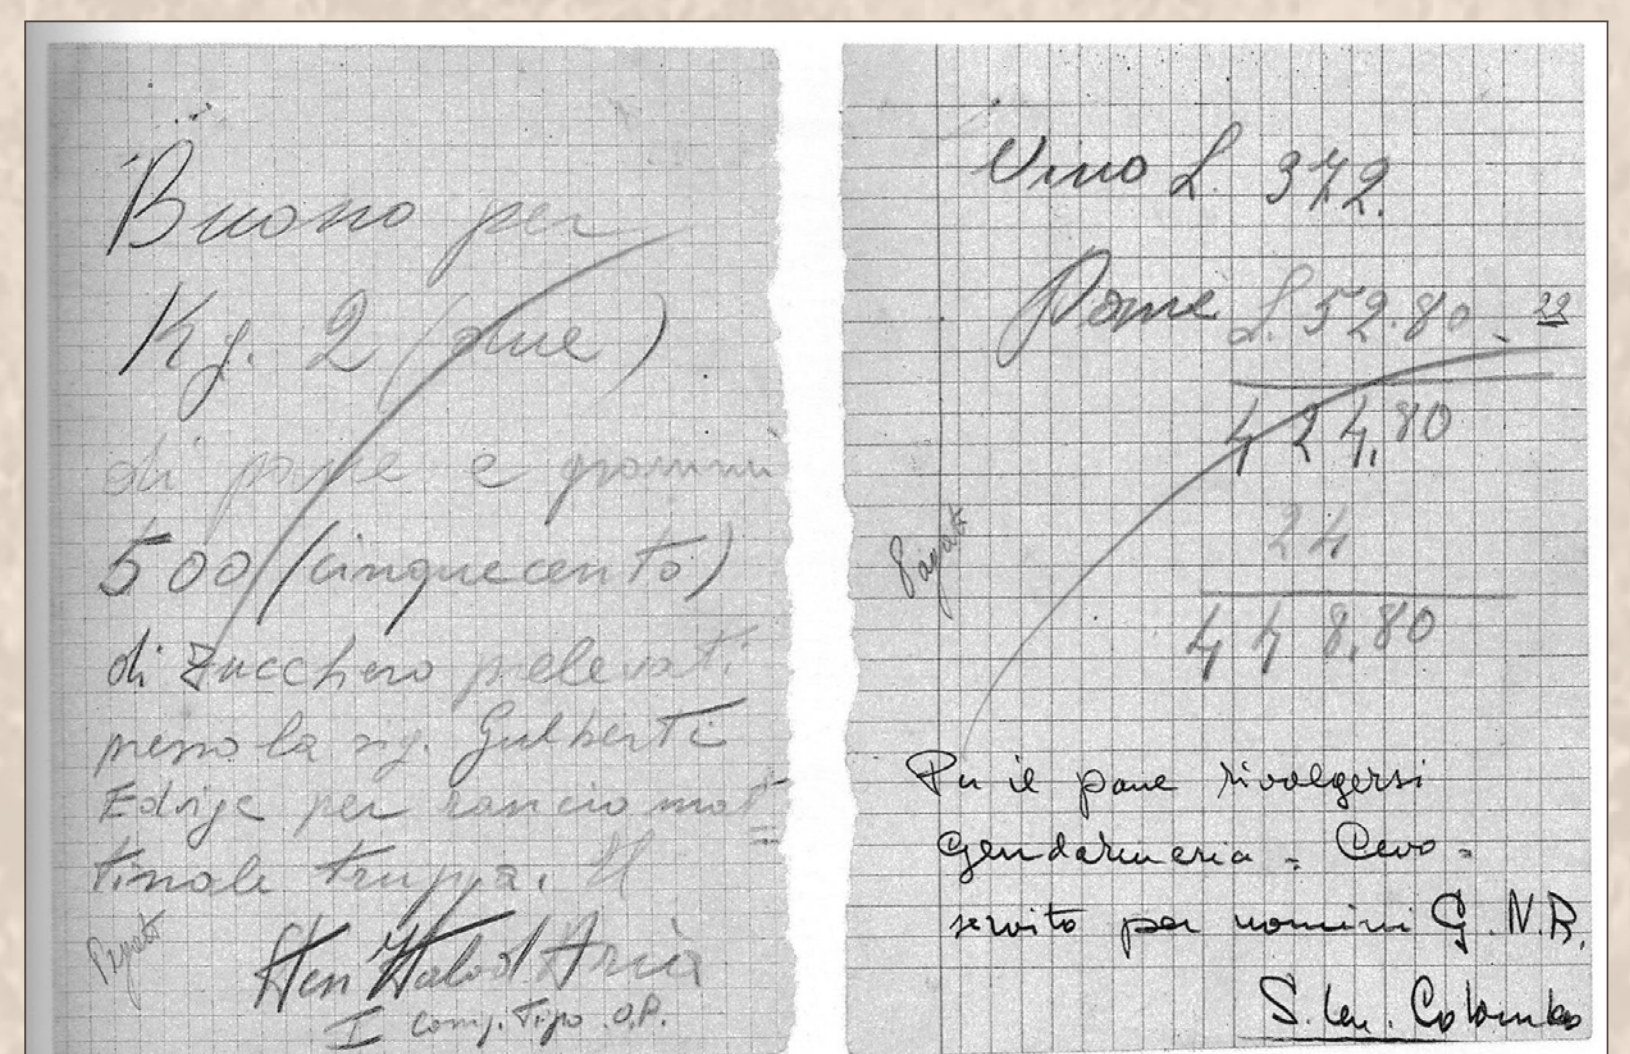 Buono per
Kg. 2 (due)
di pane e grammi
500 (cinquecento)
di zucchero prelevati
presso la sig. Gulberti
Edvige per rancio mat=
tinale truppa. Il
Pagato
I Comp. Tipo O.P.
Vino L. 372.
Pane L. 52.80
424,80
24
448,80
Pagato
Per il pane rivolgersi
Gendarmeria = Cevo =
servito per uomini G.N.R.
S. Ten. Colombo